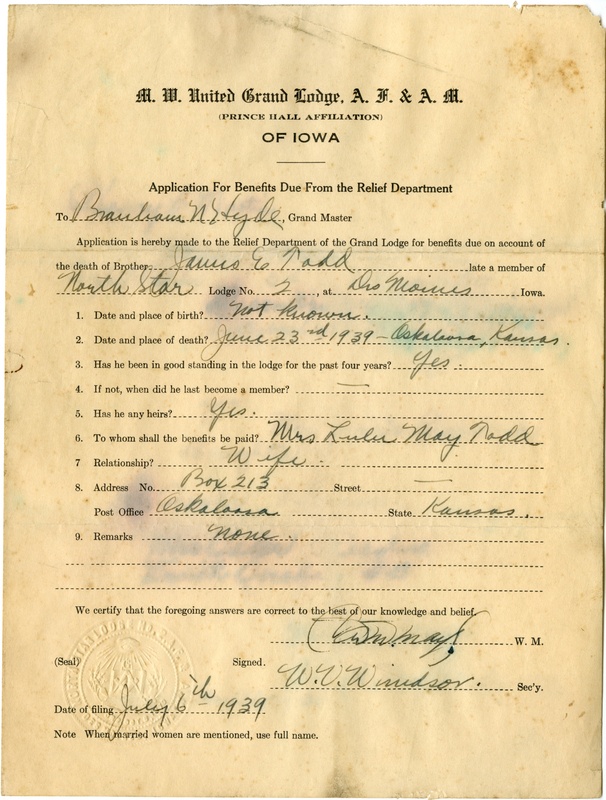 M. W. United Grand Lodge, A. F. & A. M.
(PRINCE HALL AFFILIATION)
OF IOWA
Application For Benefits Due From the Relief Department
To Branham N Hyde, Grand Master
Application is hereby made to the Relief Department of the Grand Lodge for benefits due on account of
the death of Brother James E Todd late a member of
North Star Lodge No. 2, at Des Moines Iowa.
1. Date and place of birth? Not Known.
2. Date and place of death? June 23rd 1939 - Oskaloosa, Kansas.
3. Has he been in good standing in the lodge for the past four years? Yes.
4. If not, when did he last become a member? —
5. Has he any heirs? Yes.
6. To whom shall the benefits be paid? Mrs Lulu May Todd
7 Relationship? Wife.
8. Address No. Box 213 Street —
Post Office Oskaloosa State Kansas.
9. Remarks none.
We certify that the foregoing answers are correct to the best of our knowledge and belief.
W. M.
(Seal) Signed.
W. V. Windsor. Sec'y.
Date of filing July 6th 1939
Note When married women are mentioned, use full name.